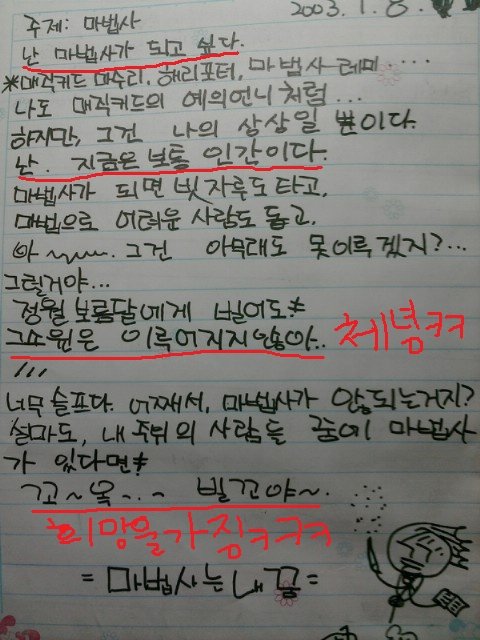 2003.1.8.
주제: 마법사
난 마법사가 되고 싶다.
*매직키드 마수리, 해리포터, 마법사 레미 ....
나도 매직키드의 예의언니처럼 ...
하지만, 그건 나의 상상일 뿐이다.
난. 지금은 보통 인간이다.
마법사가 되면 빗자루도 타고,
마법으로 어려운 사람도 돕고,
아~ 그건 아무래도 못이루겠지?...
그럴거야...
정월 보름달에게 빌어도
그소원은 이루어지지않아.. 체념ㅋㅋ
너무 슬프다. 어째서, 마법사가 않되는거지?
설마도, 내 주위의 사람들 중에 마법사
가 있다면
꼬~옥-.- 빌꼬야~.
희망을가짐ㅋㅋㅋ
=마법사는 내꿈=